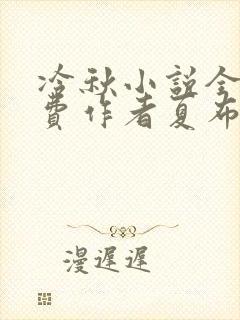 冷秋小説全
費作者夏布
漫遲遲